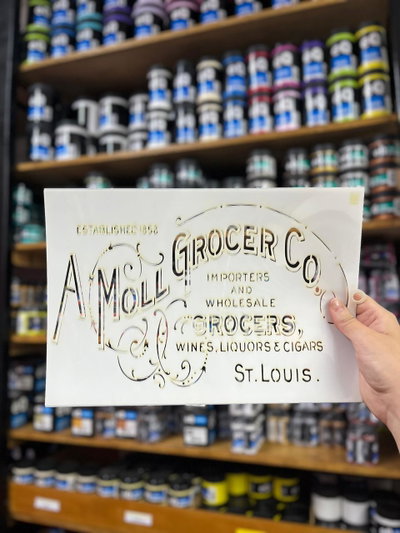 ESTABLISHED 1858
A MOLL GROCER CO.
IMPORTERS
AND
WHOLESALE
GROCERS,
WINES, LIQUORS & CIGARS
ST. LOUIS.